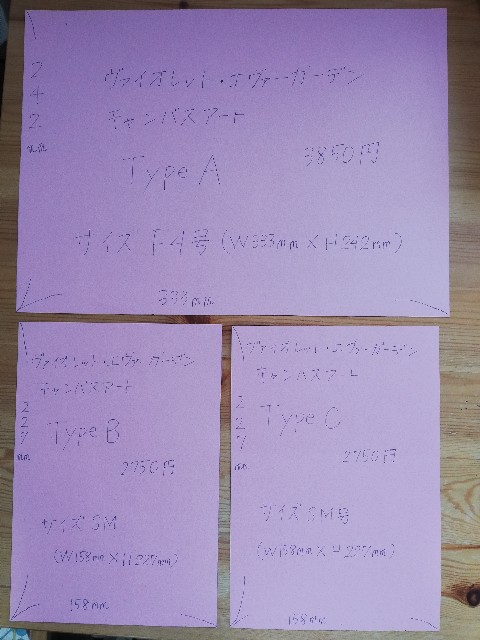 242mm
ヴァイオレット・エヴァーガーデン
キャンバスアート
Type A
3850円
サイズ F4号 (W333mm×H242mm)
333mm
ヴァイオレット・エヴァーガーデン
キャンバスアート
227mm
Type B
2750円
サイズSM
(W158mm×H227mm)
158mm
ヴァイオレット・エヴァーガーデン
キャンバスアート
227mm
Type C
2750円
サイズSM号
(W158mm×H227mm)
158mm